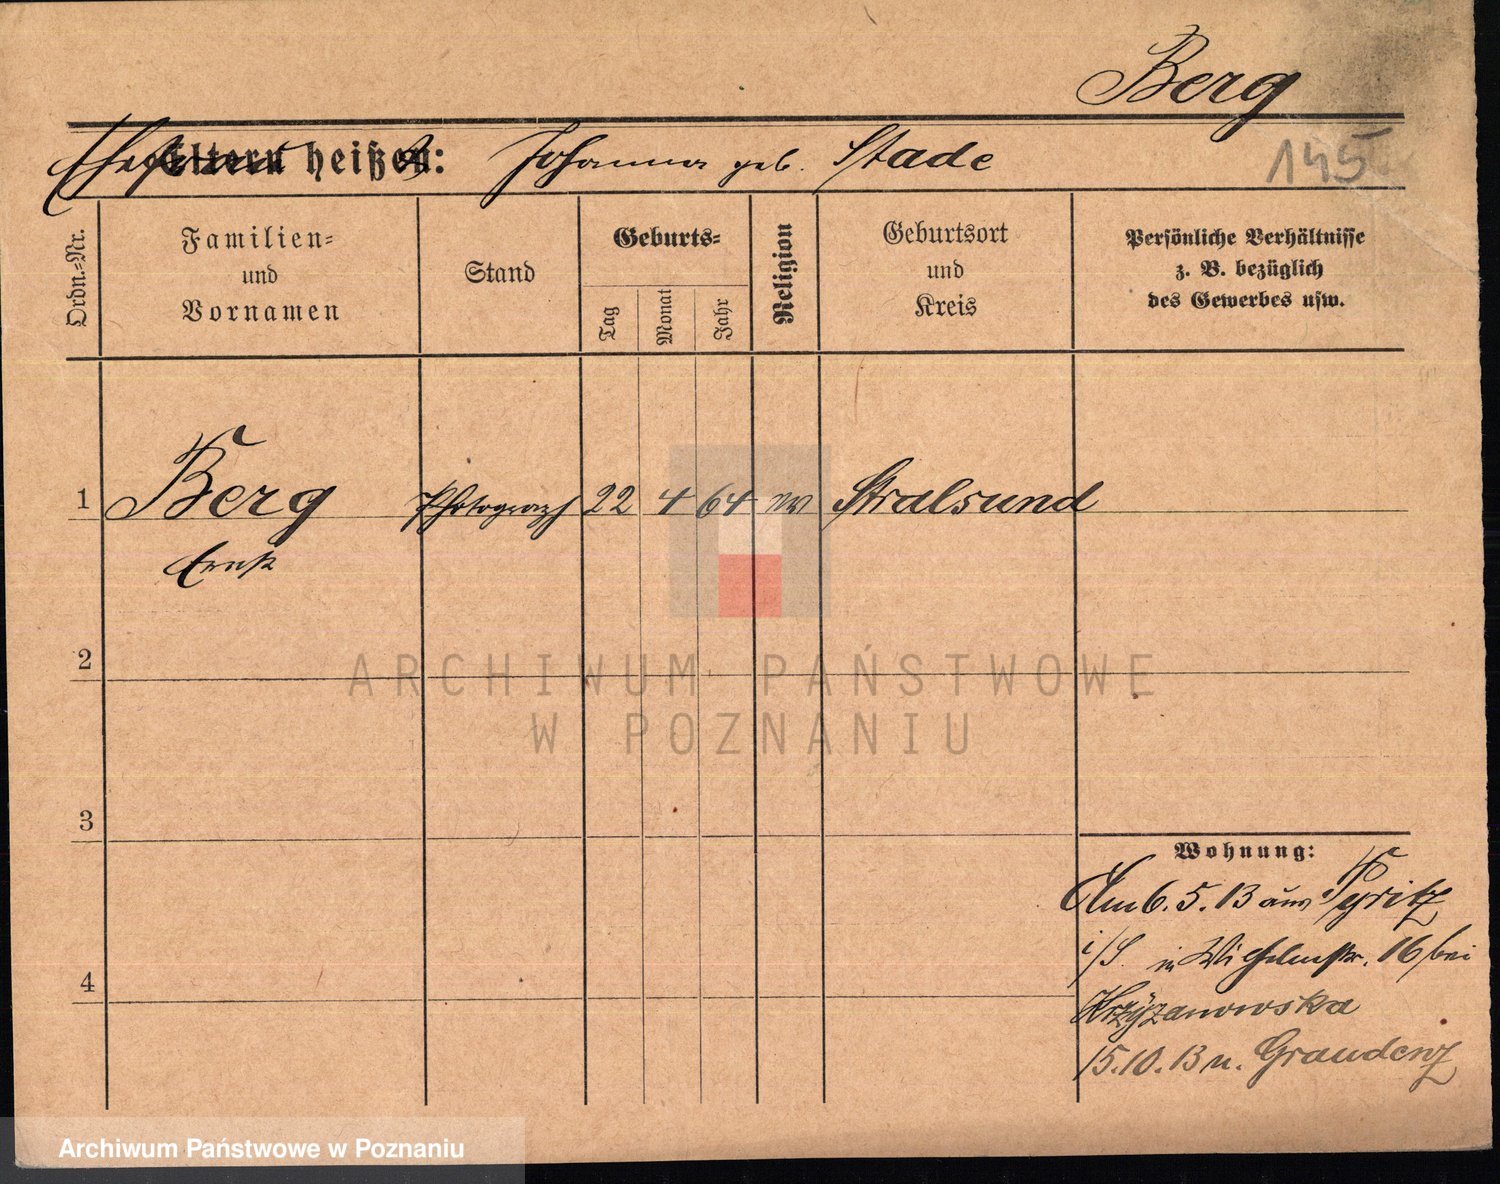 Berg
145
Ehefrau Eltern heißen: Johanna geb. Stade
Ordn.-Nr.
Familien-
und
Vornamen
Stand
Geburts-
Tag
Monat
Jahr
Religion
Geburtsort
und
Kreis
Persönliche Verhältnisse
z. B. bezüglich
des Gewerbes usw.
1 Berg Photograph 22 4 64 ev Stralsund
Ernst
2
ARCHIWUM PAŃSTWOWE
W POZNANIU
3
Wohnung:
Am 6. 5. 13 aus Pyritz
i/S. in Wilhelmstr. 16 bei
4
Krzyzanowska
15.10.13 n. Graudenz
Archiwum Państwowe w Poznaniu